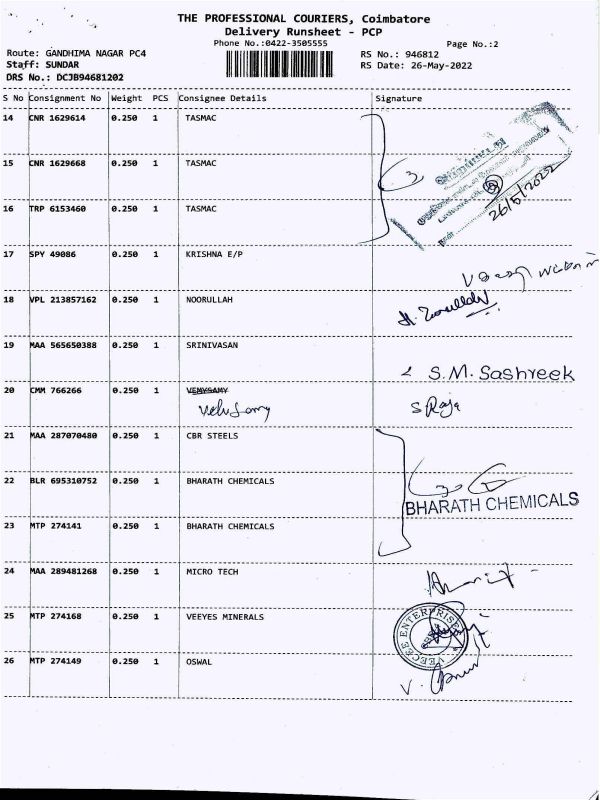 THE PROFESSIONAL COURIERS, Coimbatore
Delivery Runsheet - PCP
Phone No.:0422-3505555
Page No.:2
Route: GANDHIMA NAGAR PC4
RS No.: 946812
Staff: SUNDAR
RS Date: 26-May-2022
DRS No.: DCJB94681202
S No Consignment No Weight PCS Consignee Details Signature
14 CNR 1629614 0.250 1 TASMAC
15 CNR 1629668 0.250 1 TASMAC
3
26/5/2022
16 TRP 6153460 0.250 1 TASMAC
17 SPY 49086 0.250 1 KRISHNA E/P
18 VPL 213857162 0.250 1 NOORULLAH
19 MAA 565650388 0.250 1 SRINIVASAN
S.M. Sashreek
20 CMM 766266 0.250 1 VEMYSAMY
Velusamy
S Raja
21 MAA 287070480 0.250 1 CBR STEELS
22 BLR 695310752 0.250 1 BHARATH CHEMICALS
BHARATH CHEMICALS
23 MTP 274141 0.250 1 BHARATH CHEMICALS
24 MAA 289481268 0.250 1 MICRO TECH
25 MTP 274168 0.250 1 VEEYES MINERALS
ENTERPRISE
26 MTP 274149 0.250 1 OSWAL